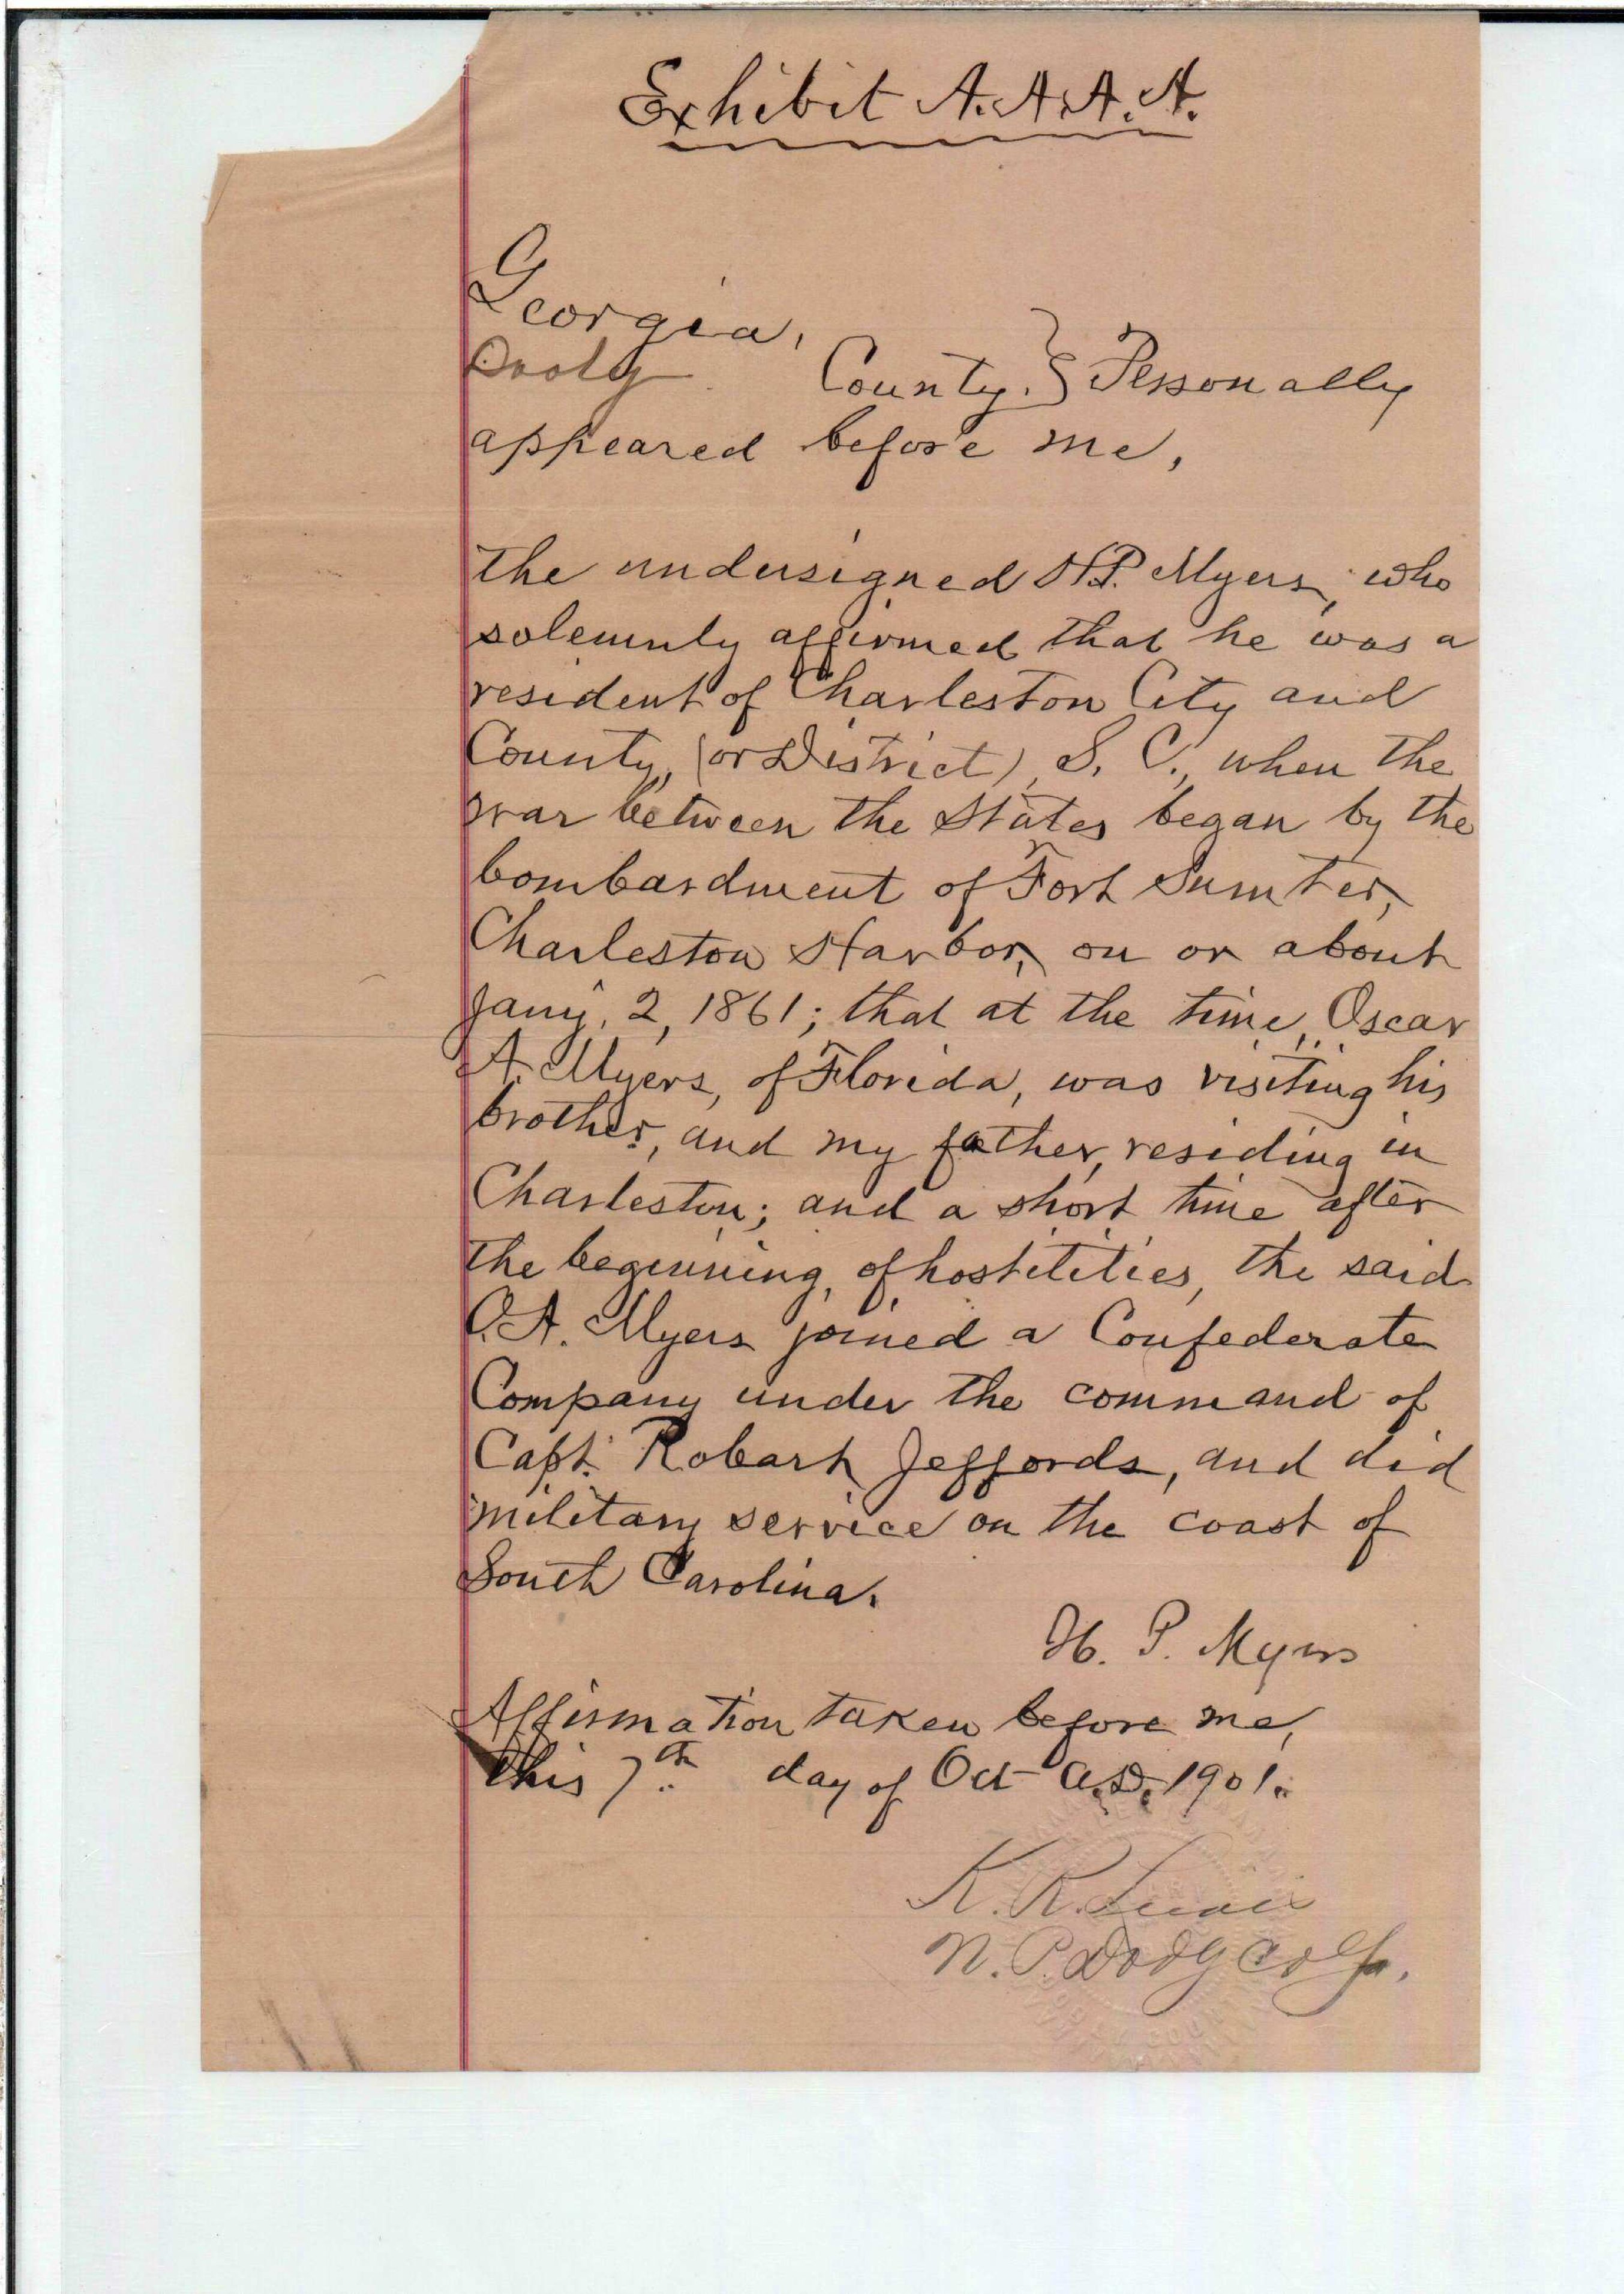 Exhibit A.A.A.A.
Georgia,
Dooly County. } Personally
appeared before me,
the undersigned H.P. Myers, who
solemnly affirmed that he was a
resident of Charleston City and
County, (or District), S. C., when the
war between the States began by the
bombardment of Fort Sumter,
Charleston Harbor, on or about
Jany. 2, 1861; that at the time, Oscar
A. Myers, of Florida, was visiting his
brother, and my father, residing in
Charleston; and a short time after
the beginning, of hostilities, the said
O.A. Myers joined a Confederate
Company under the command of
Capt. Robart Jeffords, and did
military service on the coast of
South Carolina.
H. P. Myers
Affirmation taken before me,
this 7th day of Oct A.D. 1901.
K. R.
N. P. Dooly Co Ga.